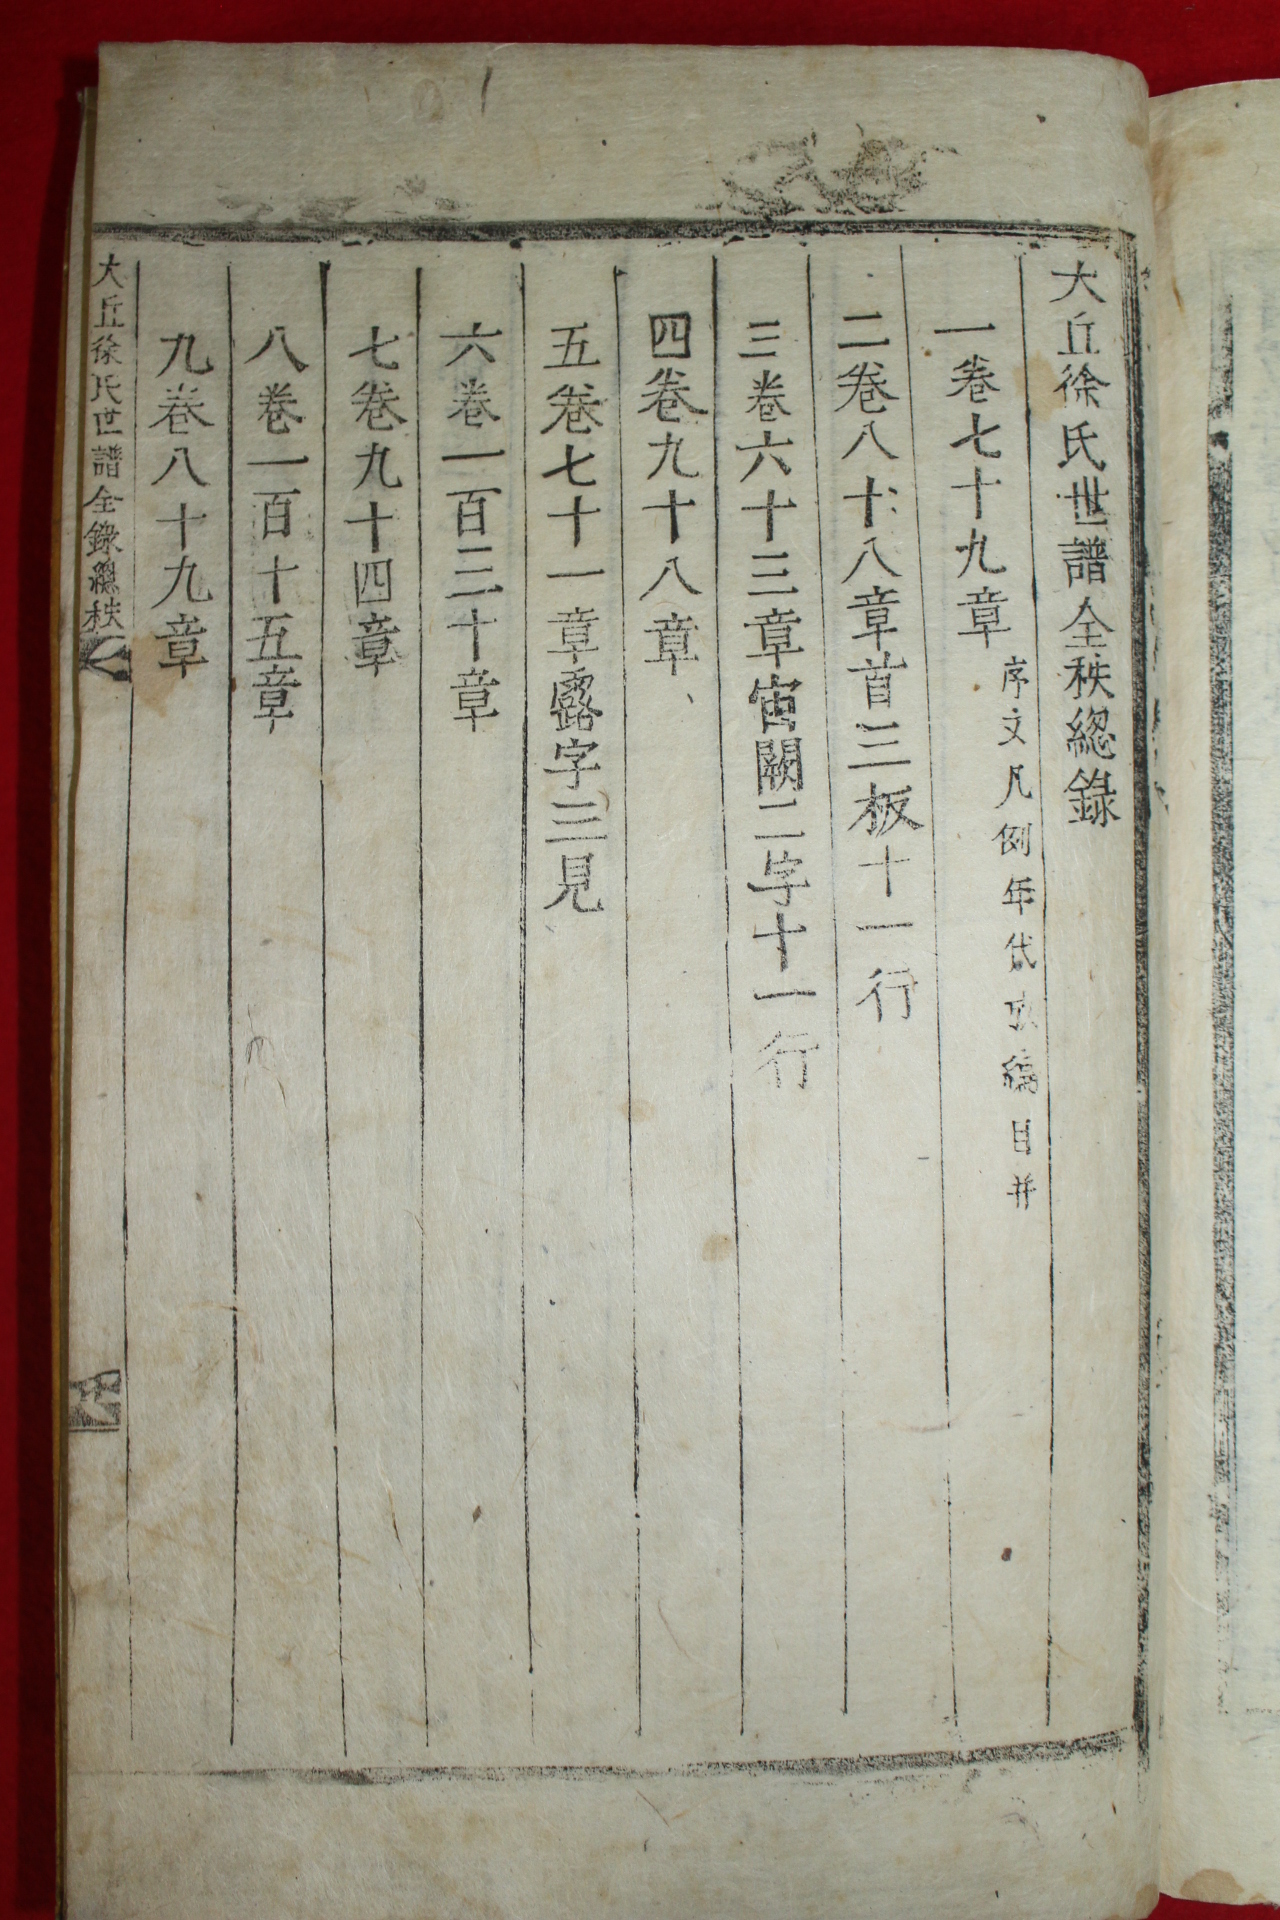 大丘徐氏世譜全秩緫錄
一卷七十九章 序文凡例年代編目并
二卷八十八章首三板十一行
三卷六十三章宙闕二字十一行
四卷九十八章
五卷七十一章露字三見
六卷一百三十章
七卷九十四章
八卷一百十五章
九卷八十九章
大丘徐氏世譜全錄緫秩